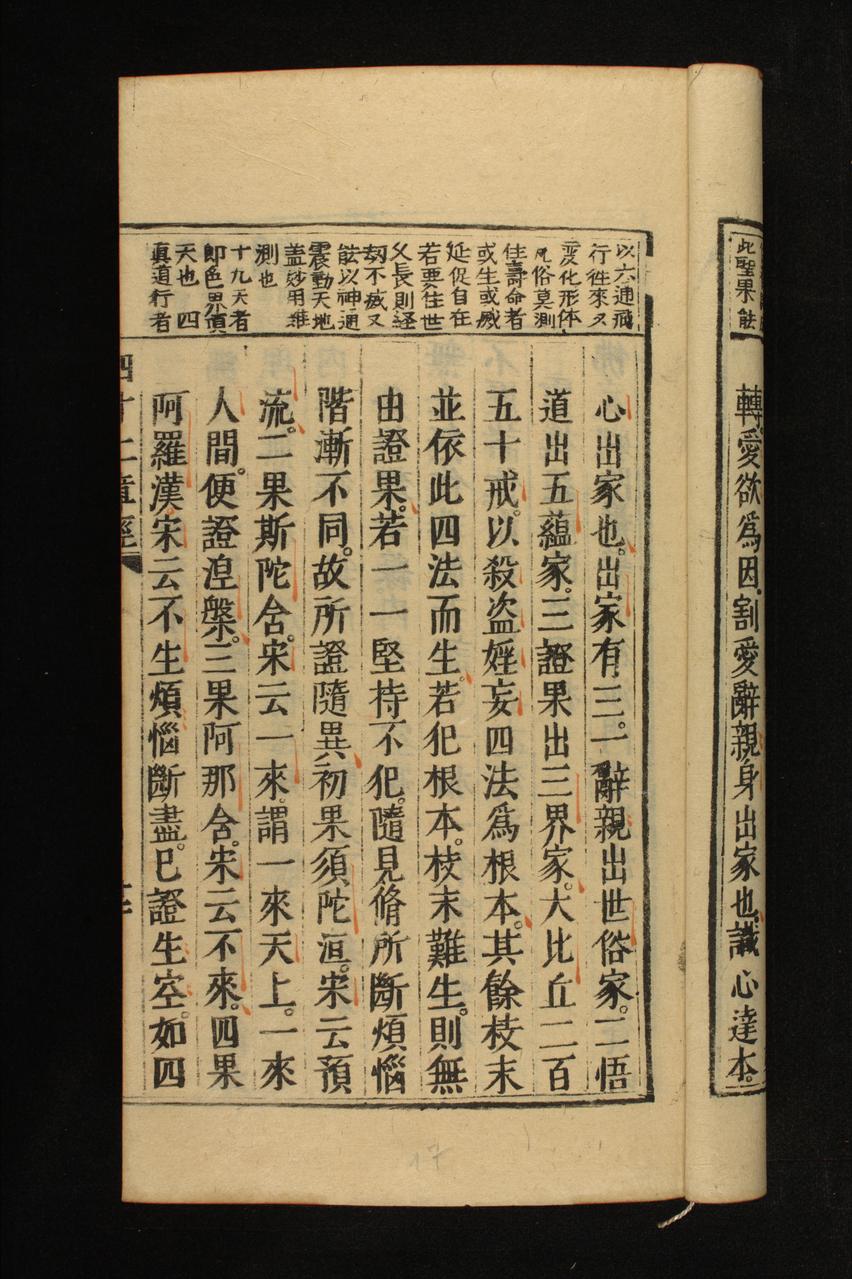 此聖果能
轉愛欲爲因割愛辭親身出家也識心達本
以六通飛
行徃來又
変化形体
凡俗莫測
住壽命者
或生或滅
延促自在
若要住世
父長則経
刼不滅又
能以神通
震動天地
盖妙用难
測也
十九天者
即色界頂
天也 四
眞道行者
心出家也出家有三一辭親出世俗家二悟
道出五蘊家三證果出三界家大比丘二百
五十戒以殺盗婬妄四法爲根本其餘枝末
並依此四法而生若犯根本枝末難生則無
由證果若一一堅持不犯隨見脩所斷煩惱
階漸不同故所證隨異初果須陀洹宋云預
流二果斯陀含宋云一來謂一來天上一來
人間便證涅槃三果阿那含宋云不來四果
阿羅漢宋云不生煩惱斷盡已證生空如四
四十二章經
17